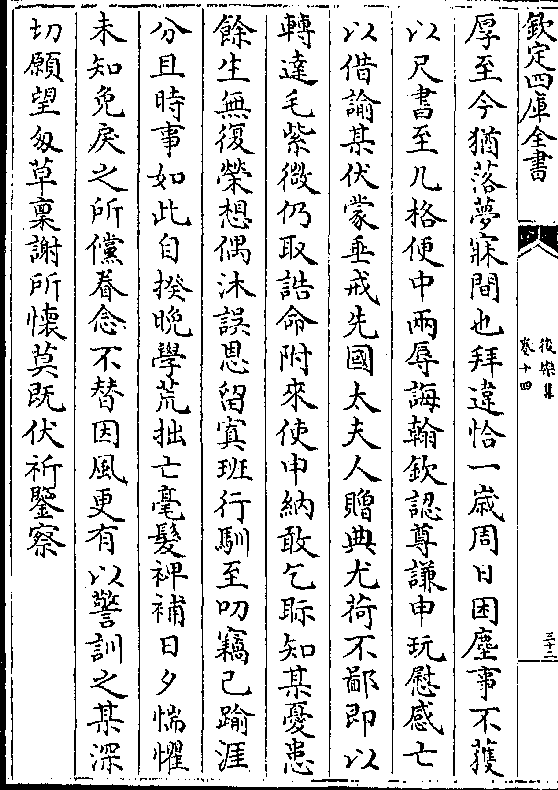 欽定四庫全書
後樂集
卷十四
三十二
厚至今猶落夢寐間也拜違恰一歲周日困塵事不獲
以尺書至几格使中兩辱誨翰欽認尊謙申玩慰感亡
以借諭某伏蒙垂戒先國太夫人贈典尤荷不鄙即以
轉達毛紫微仍取誥命附來使申納敢乞眎知某憂患
餘生無復榮想偶沐誤恩留寘班行馴至叨竊已踰涯
分且時事如此自揆晚學荒拙亡毫髮裨補日夕惴懼
未知免戾之所儻眷念不替因風更有以警訓之某深
切願望匆草稟謝所懷莫既伏祈鑒察